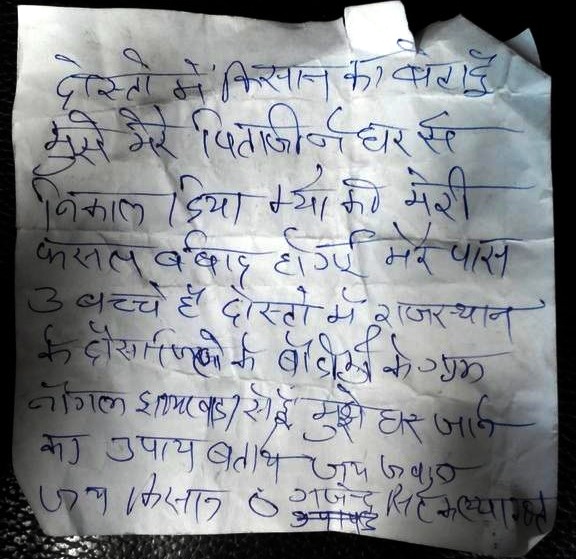 दोस्तो में किसान का बेटा हुँ
मुझे मेरे पिताजी ने घर से
निकाल दिया क्यों की मेरी
फसल बर्बाद हो गई मेरे पास
3 बच्चे है दोस्तो में राजस्थान
के दौसा जिले के बाँदीकुई के ग्राम
नाँगल झामरवाडा से हुँ मुझे घर जाने
का उपाय बताये जय जवान
जय किसान गजेन्द्र सिंह कल्याणवत